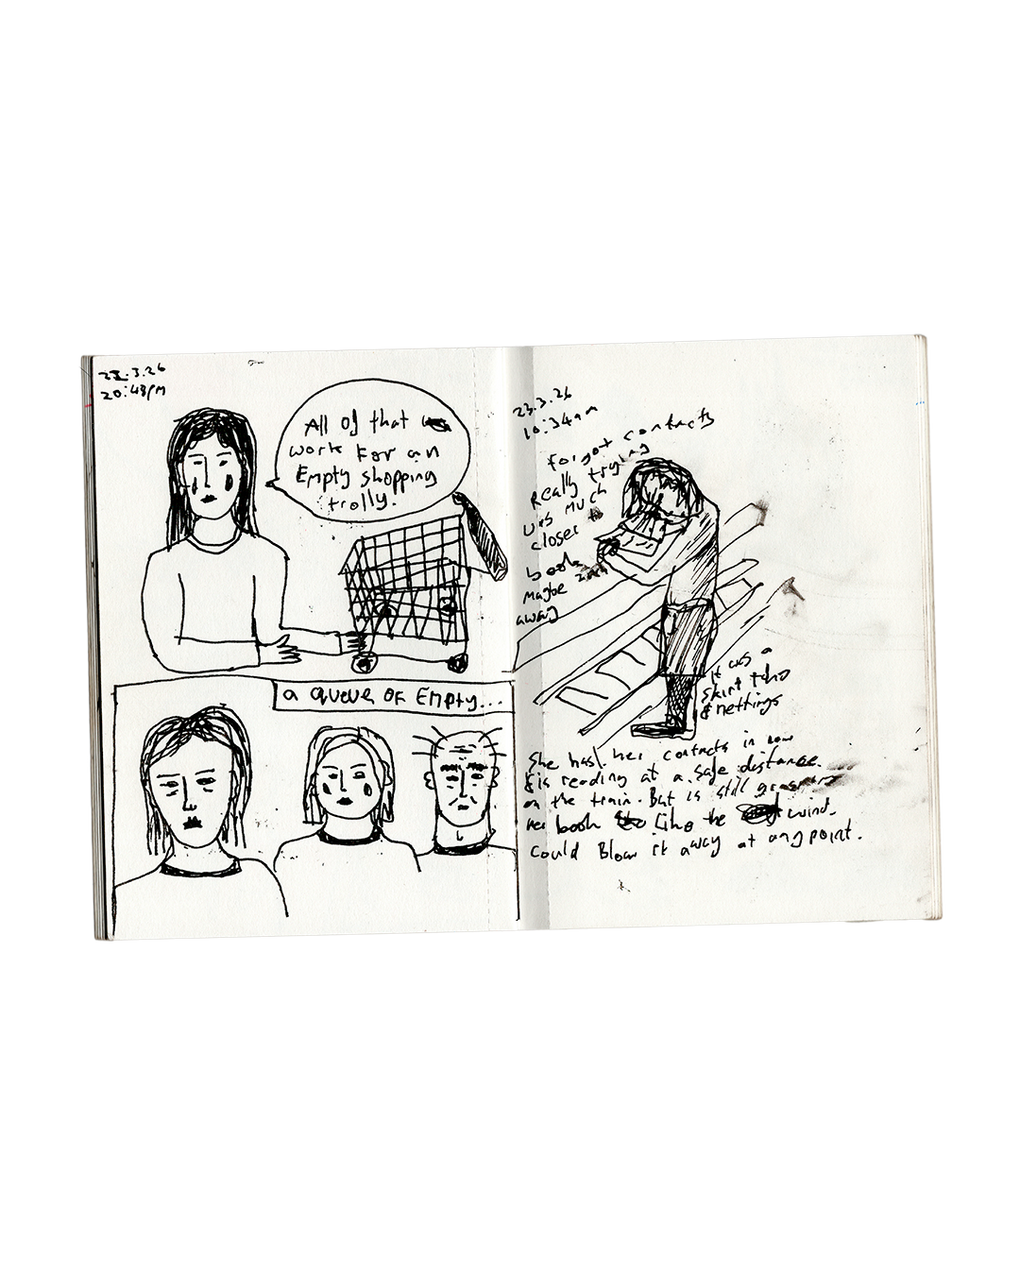 23.3.26
20:48PM
All of that
work for an
Empty shopping
trolly.
a queue of Empty...
23.3.26
10:34am
forgot contacts
Really trying
was much
closer to
book
maybe
away
it was a
skirt tho
& nettings
She has her contacts in now
& is reading at a safe distance.
on the train. But is still
her book like the wind.
could Blow it away at any point.